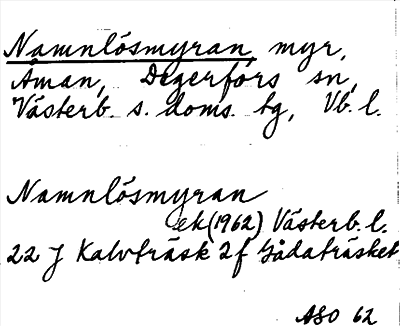 Namnlösmyran, myr,
Åman, Degerfors sn,
Västerb. s. doms. tg, Vb. l.
Namnlösmyran
ek (1962) Västerb. l.
22 J Kalvträsk 2f Gådaträsket
ASO 62